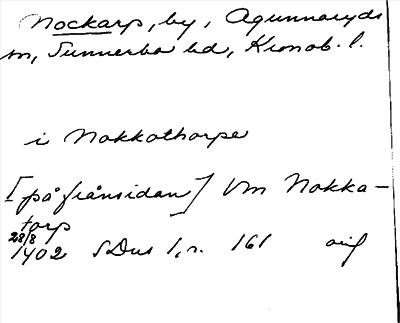 Nockarp, by, Agunnaryds
sn, Sunnerbo hd, Kronob. l.
i Nokkothorpe
[på frånsidan] Um Nokka-
torp
28/8
1402 SDns 1, s. 161 orig